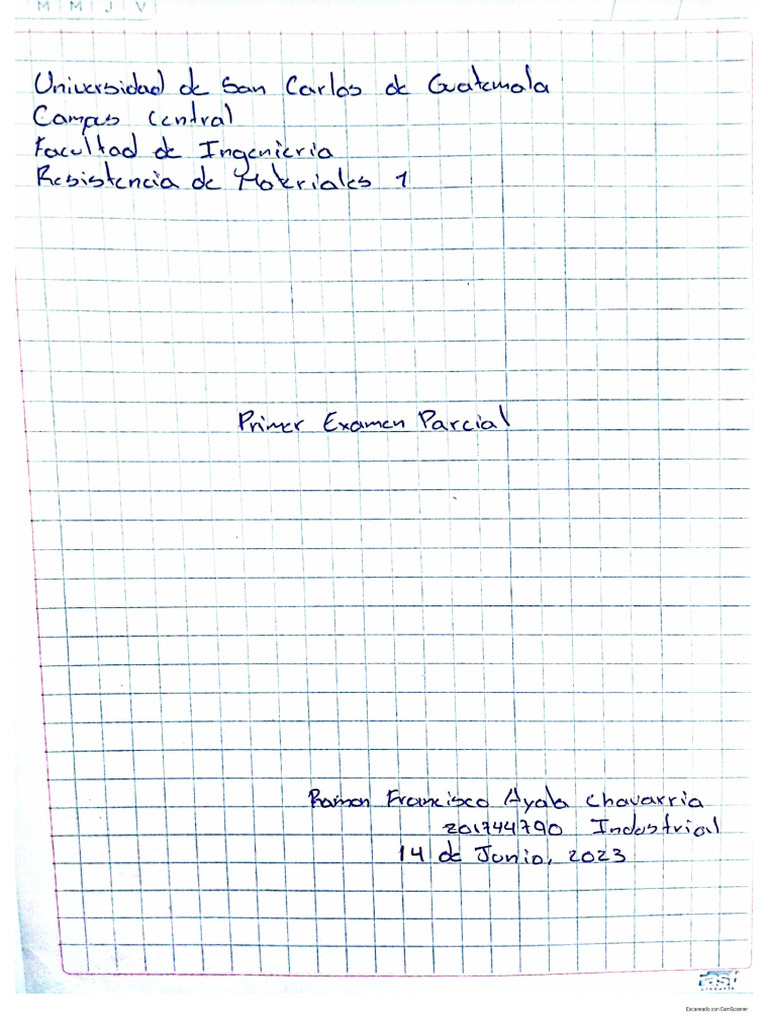 M M J V
Universidad de San Carlos de Guatemala
Campus Central
Facultad de Ingenieria
Resistencia de Materiales 1
Primer Examen Parcial
Ramon Francisco Ayala Chavarria
201744790 Industrial
14 de Junio, 2023
Escaneado con CamScanner